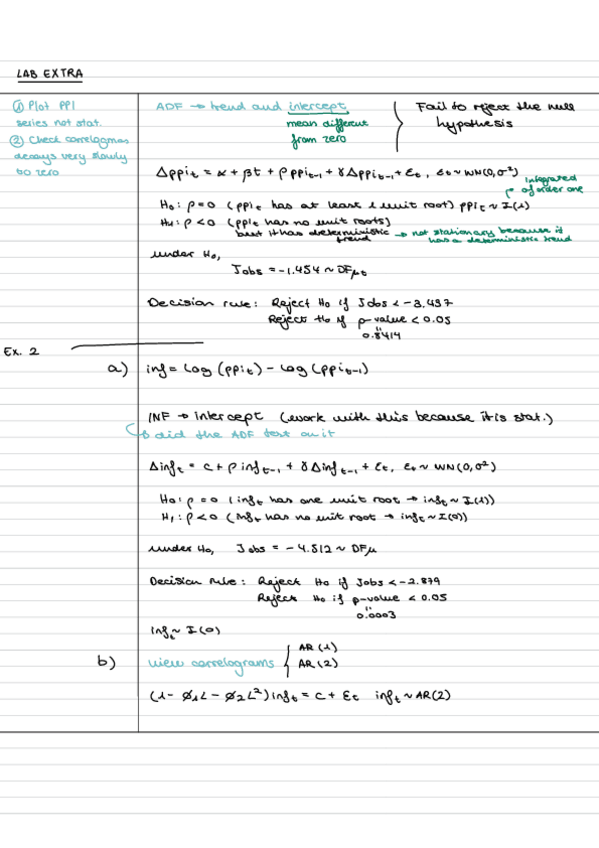 LAB EXTRA
① Plot PPI
series not stat.
② Check correlogmas
decays very slowly
to zero
ADF → trend and intercept
mean different
from zero
Fail to reject the null
hypothesis
Δppiₜ = α + βt + ρ ppiₜ₋₁ + γΔppiₜ₋₁ + εₜ, εₜ ~ WN(0,σ²)
integrated
of order one
H₀: ρ=0 (ppiₜ has at least 1 unit root) ppiₜ ~ I(1)
H₁: ρ<0 (ppiₜ has no unit roots)
but it has deterministic trend → not stationary because it
has a deterministic trend
under H₀,
Jobs = -1.454 ~ DFμt
Decision rule: Reject H₀ if Jobs < -3.437
Reject H₀ if p-value < 0.05
0.8414
Ex. 2
a) inf = log (ppiₜ) - log (ppiₜ₋₁)
INF → intercept (work with this because it is stat.)
↳ did the ADF test on it
Δinfₜ = c + ρ infₜ₋₁ + γΔinfₜ₋₁ + εₜ, εₜ ~ WN(0,σ²)
H₀: ρ = 0 (infₜ has one unit root → infₜ ~ I(1))
H₁: ρ<0 (infₜ has no unit root → infₜ ~ I(0))
under H₀, Jobs = -4.512 ~ DFμ
Decision rule: Reject H₀ if Jobs < -2.879
Reject H₀ if p-value < 0.05
0.0003
infₜ ~ I(0)
b) view correlograms { AR(1)
AR(2)
(1 - ø₁L - ø₂L²) infₜ = c + εₜ infₜ ~ AR(2)